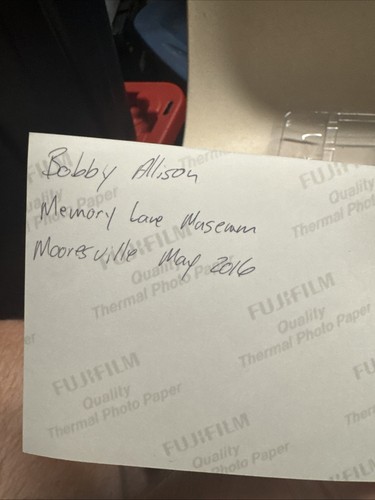 Bobby Allison
Memory Lane Museum
Mooresville May 2016
Therm
FUJI
Quality
Thermal Photo
Paper
FUJIFILM
Quality
Thermal Photo Paper
FUJIFILM
Quality
Thermal Photo Paper
FUJIFILM
Quality
Thermal Photo Paper
FUJIFILM
Quality
Photo Paper
Thermal